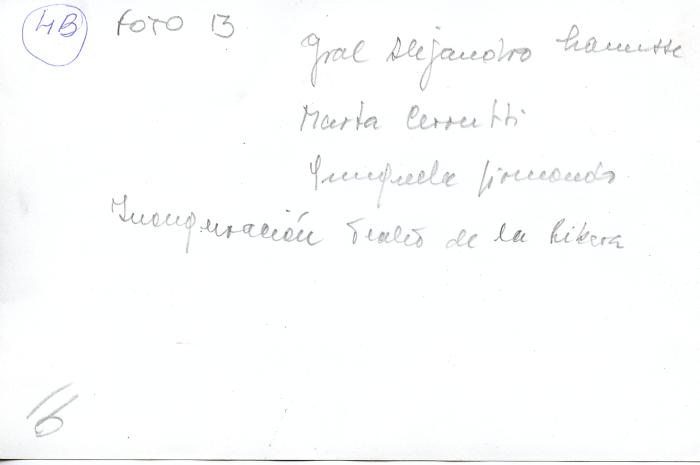 4B FOTO 13
Gral Alejandro Lanusse
Marta Cerrutti
firmando
Inauguración Teatro de la Ribera
6